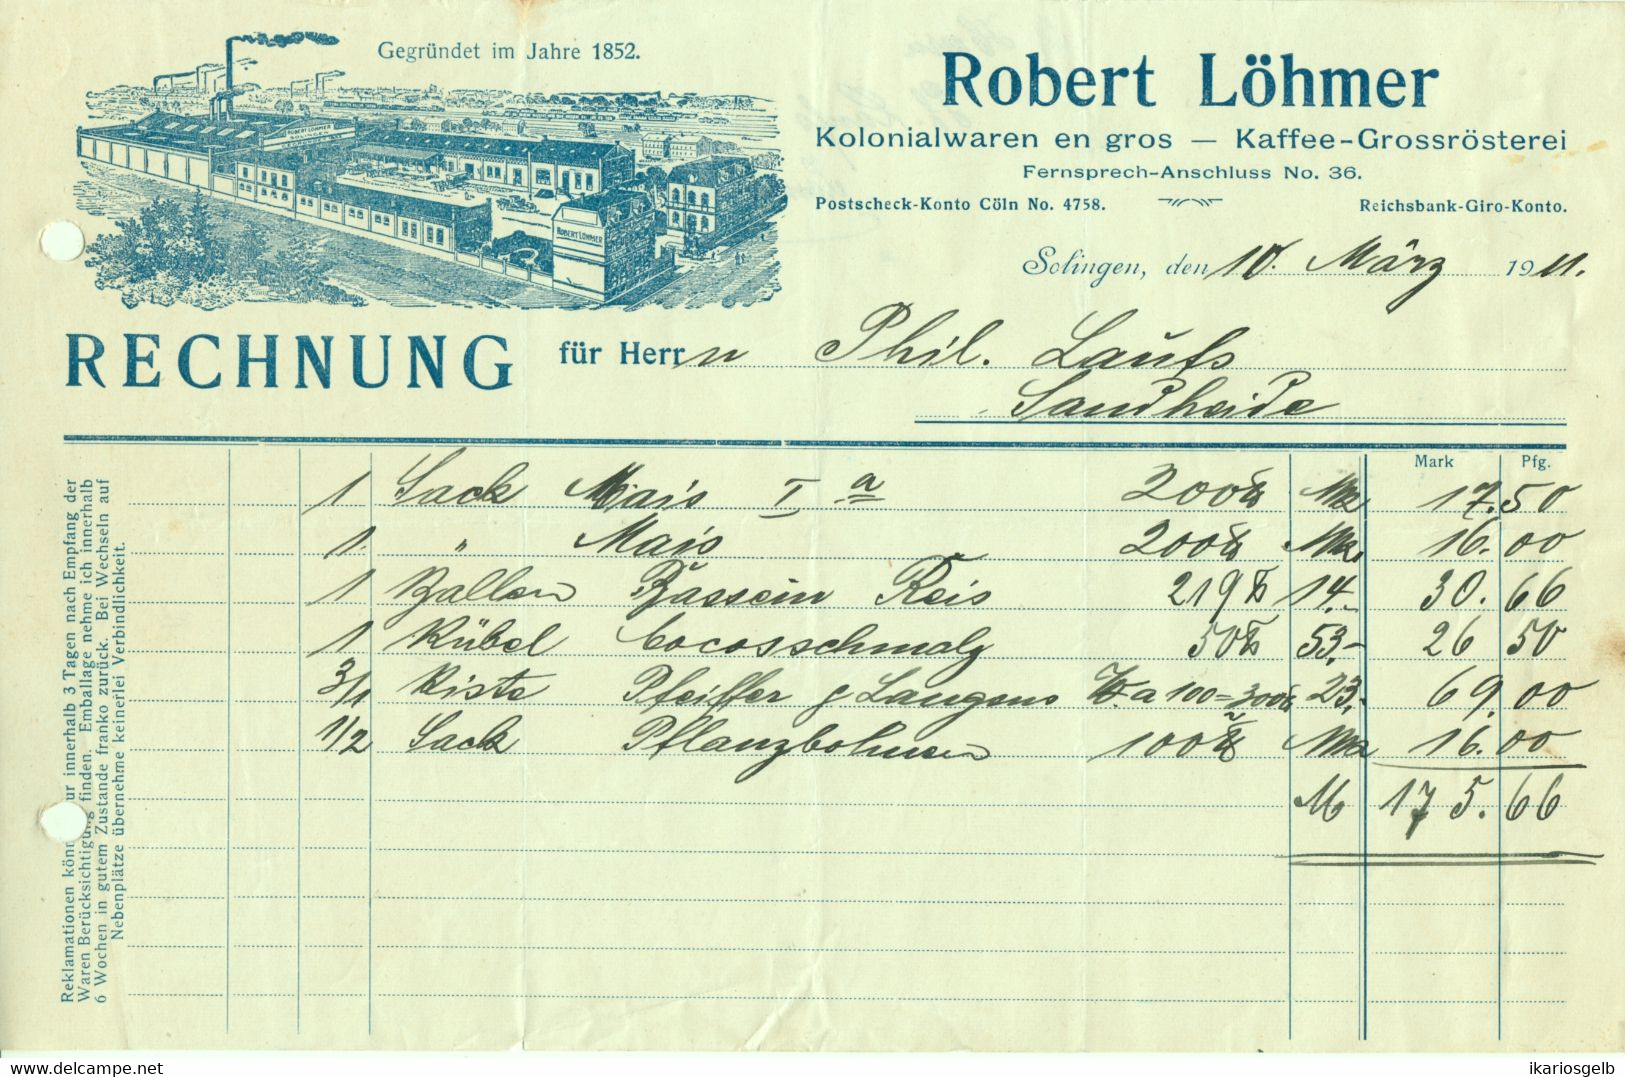 Gegründet im Jahre 1852.
ROBERT LÖHMER
SOLINGEN
ROBERT LÖHMER
Robert Löhmer
Kolonialwaren en gros — Kaffee-Grossrösterei
Fernsprech-Anschluss No. 36.
Postscheck-Konto Cöln No. 4758. Reichsbank-Giro-Konto.
Solingen, den 10. März 1911.
RECHNUNG für Herrn Phil. Laufs
Sandheide
Mark Pfg.
1 Sack Mais Ia 200 ℔ 17.50
1 " Mais 200 ℔ 16.00
1 Ballen Bassein Reis 219 ℔ 14.- 30.66
1 Kübel Cocosschmalz 50 ℔ 53.- 26 50
3/1 Kiste Pfeiffer & Langens a 100 = 300 ℔ 23.- 69.00
1/2 Sack Pflanzbohnen 100 ℔ 16.00
M 175.66
Reklamationen könn ur innerhalb 3 Tagen nach Empfang der
Waren Berücksichtigung finden. Emballage nehme ich innerhalb
6 Wochen in gutem Zustande franko zurück. Bei Wechseln auf
Nebenplätze übernehme keinerlei Verbindlichkeit.
www.delcampe.net
ikariosgelb